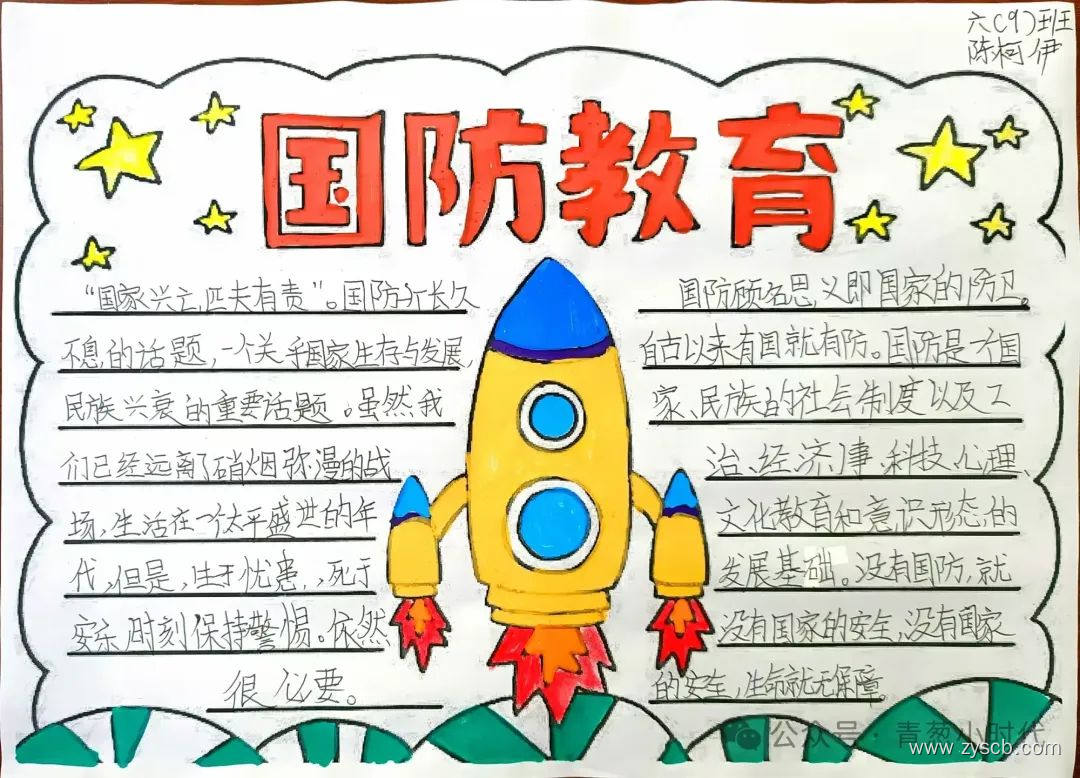 六(9)班
陈柯伊
国防教育
"国家兴亡,匹夫有责"。国防才长久
不息的话题,一个关乎国家生存与发展,
民族兴衰的重要话题。虽然我
们已经远离了硝烟弥漫的战
场,生活在一个太平盛世的年
代,但是,生于忧患,死于
安乐,时刻保持警惕。依然
很必要。
国防顾名思义即国家的防卫。
自古以来有国就有防。国防是一个国
家、民族的社会制度以及工
治、经济、事、科技、心理、
文化教育和意识形态的
发展基础。没有国防,就
没有国家的安全,没有国家
的安全,生命就无保障。
公众号·青葱小时代
www.zyscb.com